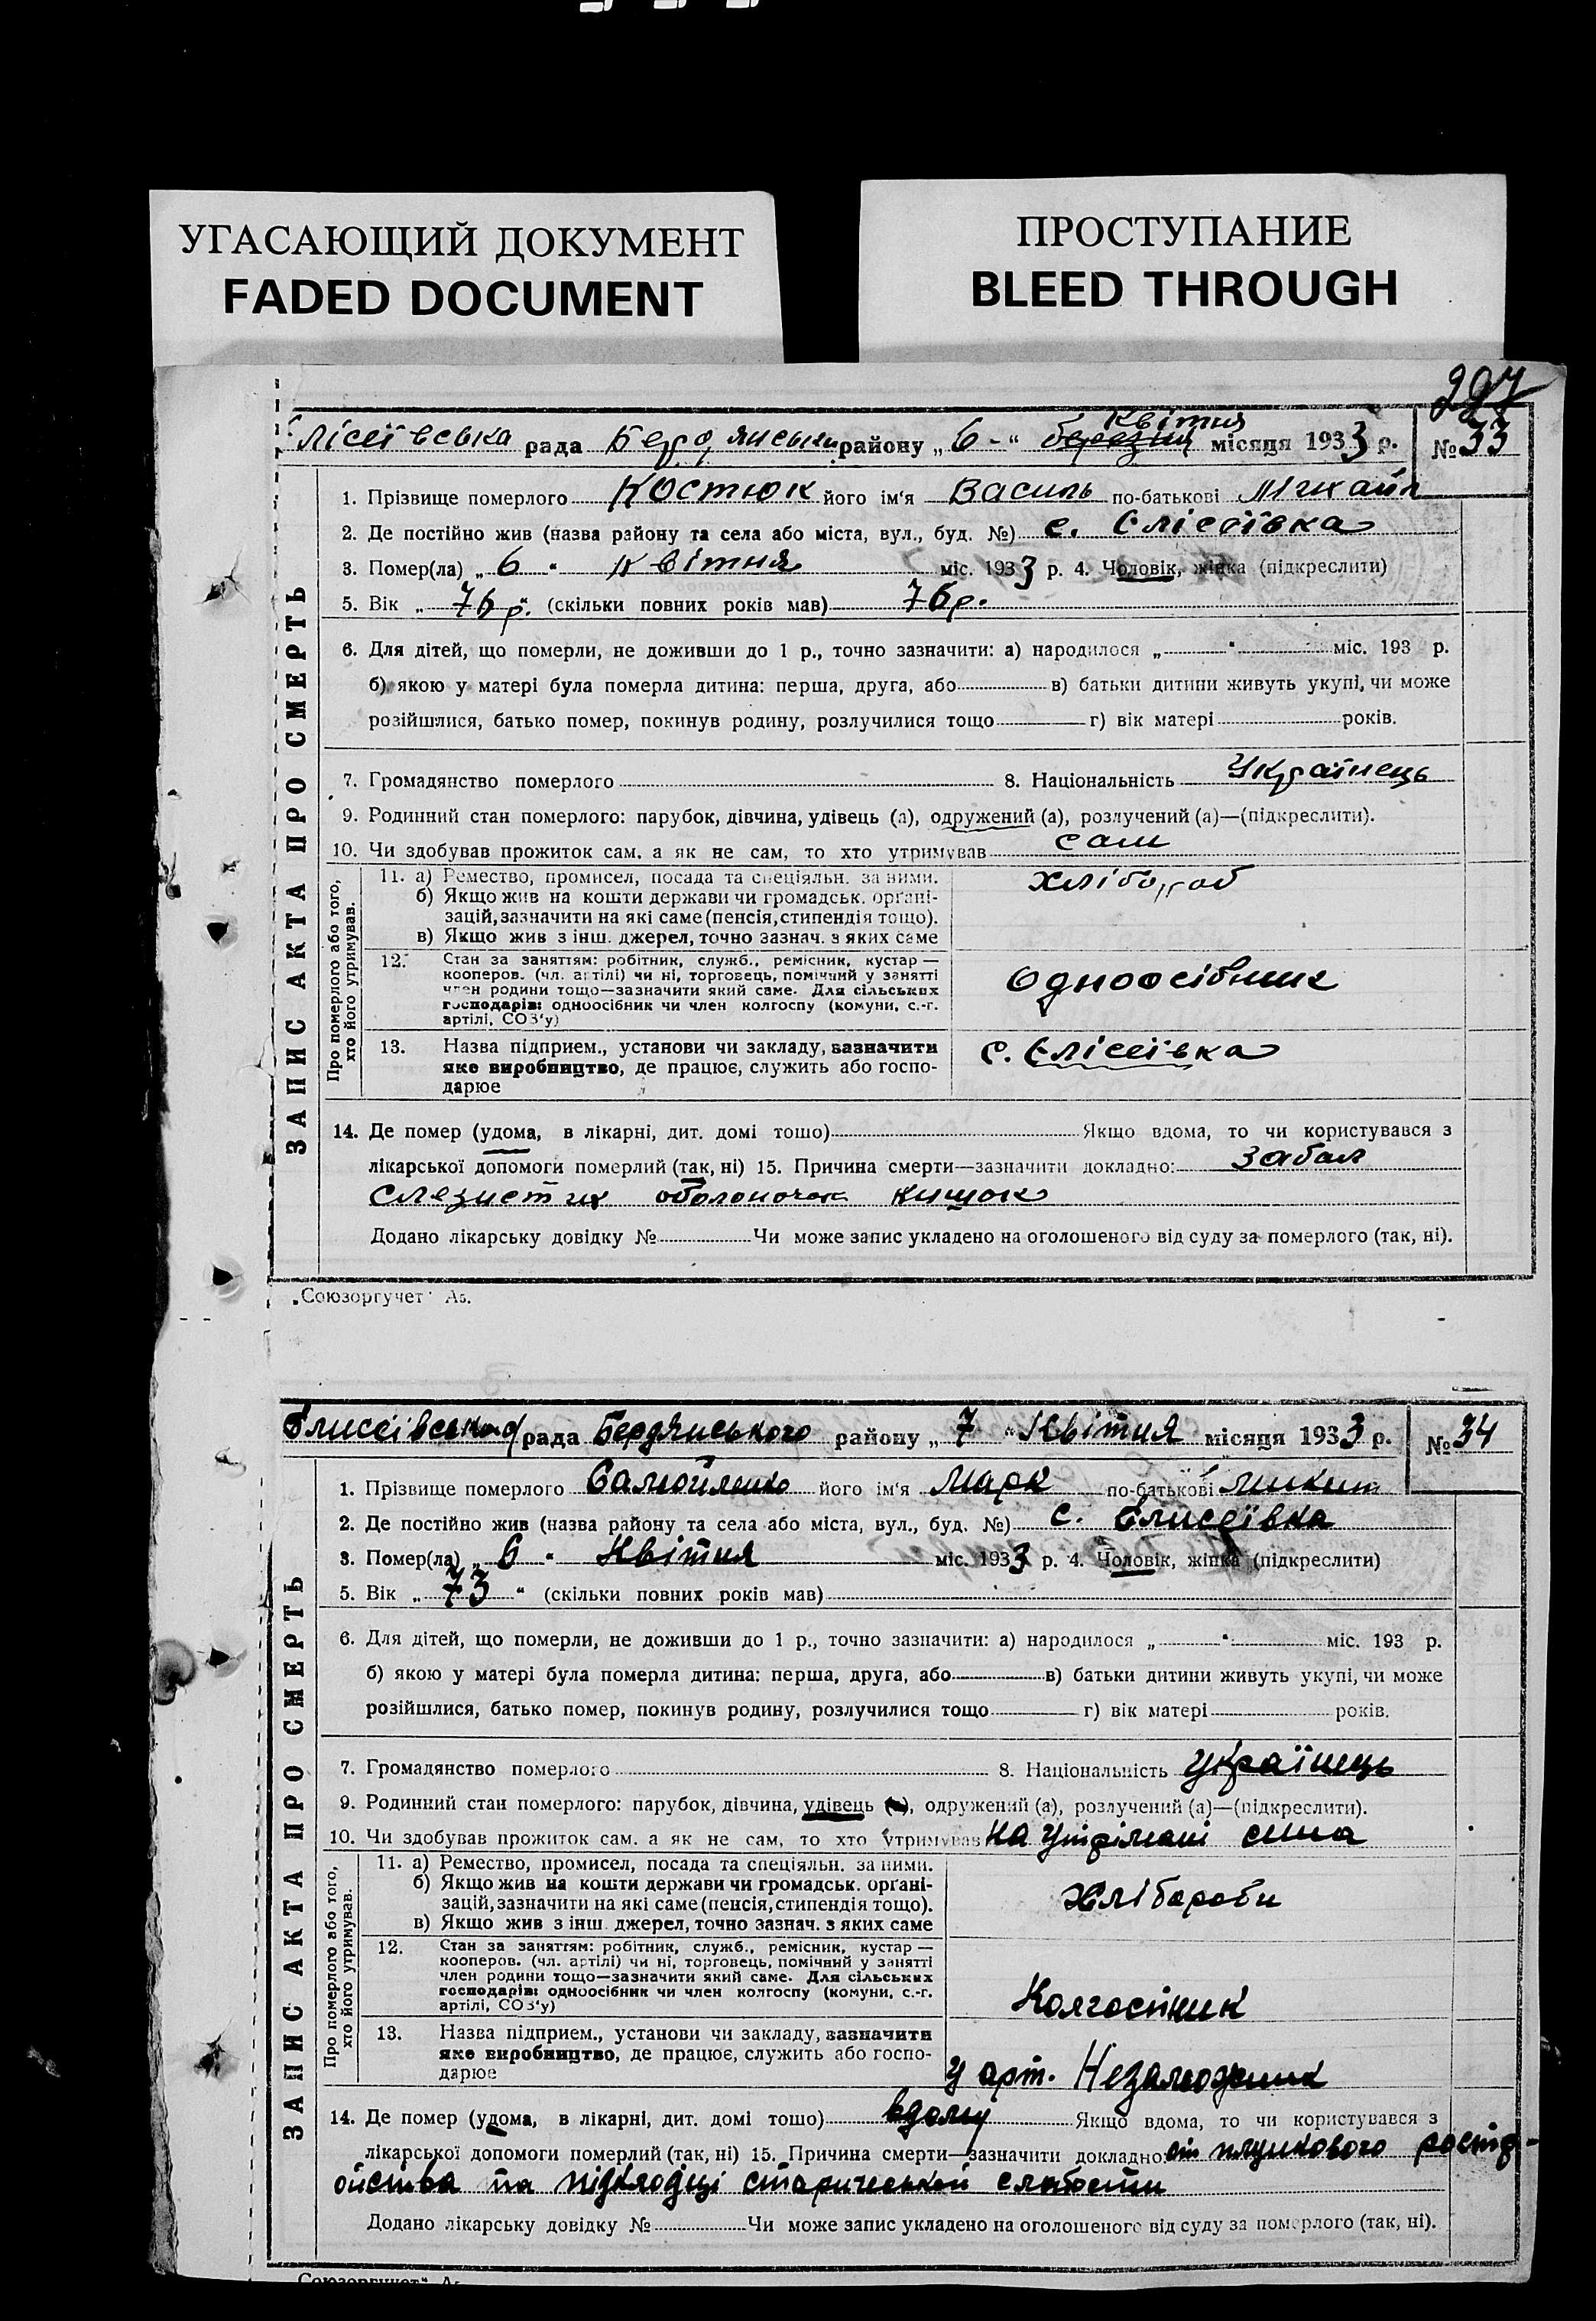 УГАСАЮЩИЙ ДОКУМЕНТ
FADED DOCUMENT
ПРОСТУПАНИЕ
BLEED THROUGH
297
Єлісеївська рада Бердянськ району „ 6 - “ березня Квітня місяця 1933 р. № 33
ЗАПИС АКТА ПРО СМЕРТЬ
1. Прізвище померлого Костюк його ім'я Василь по-батькові Міхайл
2. Де постійно жив (назва району та села або міста, вул., буд. №) с. Єлісеївка
3. Помер(ла) „ 6 “ Квітня міс. 1933 р. 4. Чоловік, жінка (підкреслити)
5. Вік „ 76 р. “ (скільки повних років мав) 76 р.
6. Для дітей, що померли, не доживши до 1 р., точно зазначити: а) народилося „ “ міс. 193 р.
б) якою у матері була померла дитина: перша, друга, або в) батьки дитини живуть укупі, чи може
розійшлися, батько помер, покинув родину, розлучилися тощо г) вік матері років.
7. Громадянство померлого 8. Національність Українець
9. Родинний стан померлого: парубок, дівчина, удівець (а), одружений (а), розлучений (а)—(підкреслити).
10. Чи здобував прожиток сам, а як не сам, то хто утримував сам
Про померлого або того, хто його утримував.
11. а) Ремество, промисел, посада та спеціяльн. за ними. хлібороб
б) Якщо жив на кошти держави чи громадськ. орґані-
зацій, зазначити на які саме (пенсія, стипендія тощо).
в) Якщо жив з інш. джерел, точно зазнач. з яких саме
12. Стан за заняттям: робітник, служб., ремісник, кустар —
кооперов. (чл. артілі) чи ні, торговець, помічний у занятті
член родини тощо—зазначити який саме. Для сільських
господарів: одноосібник чи член колгоспу (комуни, с.-г.
артілі, СОЗ'у)
Одноосібник
13. Назва підприєм., установи чи закладу, зазначити
яке виробництво, де працює, служить або госпо-
дарює
с. Єлісеївка
14. Де помер (удома, в лікарні, дит. домі тощо) Якщо вдома, то чи користувався з
лікарської допомоги померлий (так, ні) 15. Причина смерти—зазначити докладно: Забал
слезистих оболочок кишок
Додано лікарську довідку № Чи може запис укладено на оголошеного від суду за померлого (так, ні).
„Союзоргучет“ Аз.
рада Бердянського району „ 7 “ Квітня місяця 1933 р. № 34
ЗАПИС АКТА ПРО СМЕРТЬ
1. Прізвище померлого Самойленко його ім'я Марк по-батькові Микит
2. Де постійно жив (назва району та села або міста, вул., буд. №) с. Єлисеївка
3. Помер(ла) „ 6 “ Квітня міс. 1933 р. 4. Чоловік, жінка (підкреслити)
5. Вік „ 73 “ (скільки повних років мав)
6. Для дітей, що померли, не доживши до 1 р., точно зазначити: а) народилося „ “ міс. 193 р.
б) якою у матері була померла дитина: перша, друга, або в) батьки дитини живуть укупі, чи може
розійшлися, батько помер, покинув родину, розлучилися тощо г) вік матері років.
7. Громадянство померлого 8. Національність Українець
9. Родинний стан померлого: парубок, дівчина, удівець (а), одружений (а), розлучений (а)—(підкреслити).
10. Чи здобував прожиток сам, а як не сам, то хто утримував на утрімані сина
Про померлого або того, хто його утримував.
11. а) Ремество, промисел, посада та спеціяльн. за ними.
б) Якщо жив на кошти держави чи громадськ. орґані-
зацій, зазначити на які саме (пенсія, стипендія тощо).
в) Якщо жив з інш. джерел, точно зазнач. з яких саме
хлібороби
12. Стан за заняттям: робітник, служб., ремісник, кустар —
кооперов. (чл. артілі) чи ні, торговець, помічний у занятті
член родини тощо—зазначити який саме. Для сільських
господарів: одноосібник чи член колгоспу (комуни, с.-г.
артілі, СОЗ'у)
Колгоспник
13. Назва підприєм., установи чи закладу, зазначити
яке виробництво, де працює, служить або госпо-
дарює
у арт. Незаможник
14. Де помер (удома, в лікарні, дит. домі тощо) вдомі Якщо вдома, то чи користувався з
лікарської допомоги померлий (так, ні) 15. Причина смерти—зазначити докладно: від шлункового
та підкладці старической слабости
Додано лікарську довідку № Чи може запис укладено на оголошеного від суду за померлого (так, ні).
„Союзоргучет“ Аз.